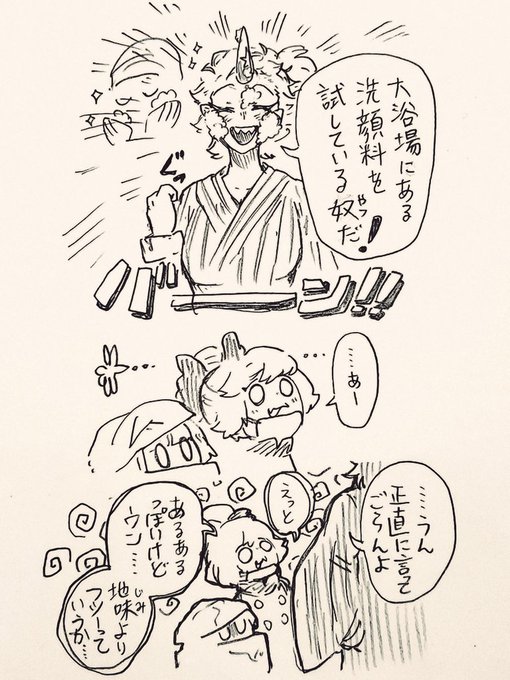 大浴場にある
洗顔料を
試している奴だ!
やつ
ぐっ
バーン!!
……
……あー
……うん
正直に言って
ごらんよ
えっと
あるある
っぽいけど
ウン……
地味より
じみ
フツーって
いうか…